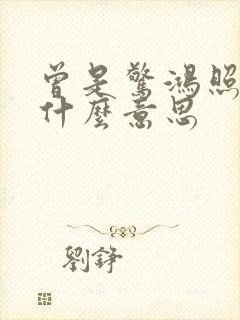 曾是驚鴻照
什麼意思
劉錚